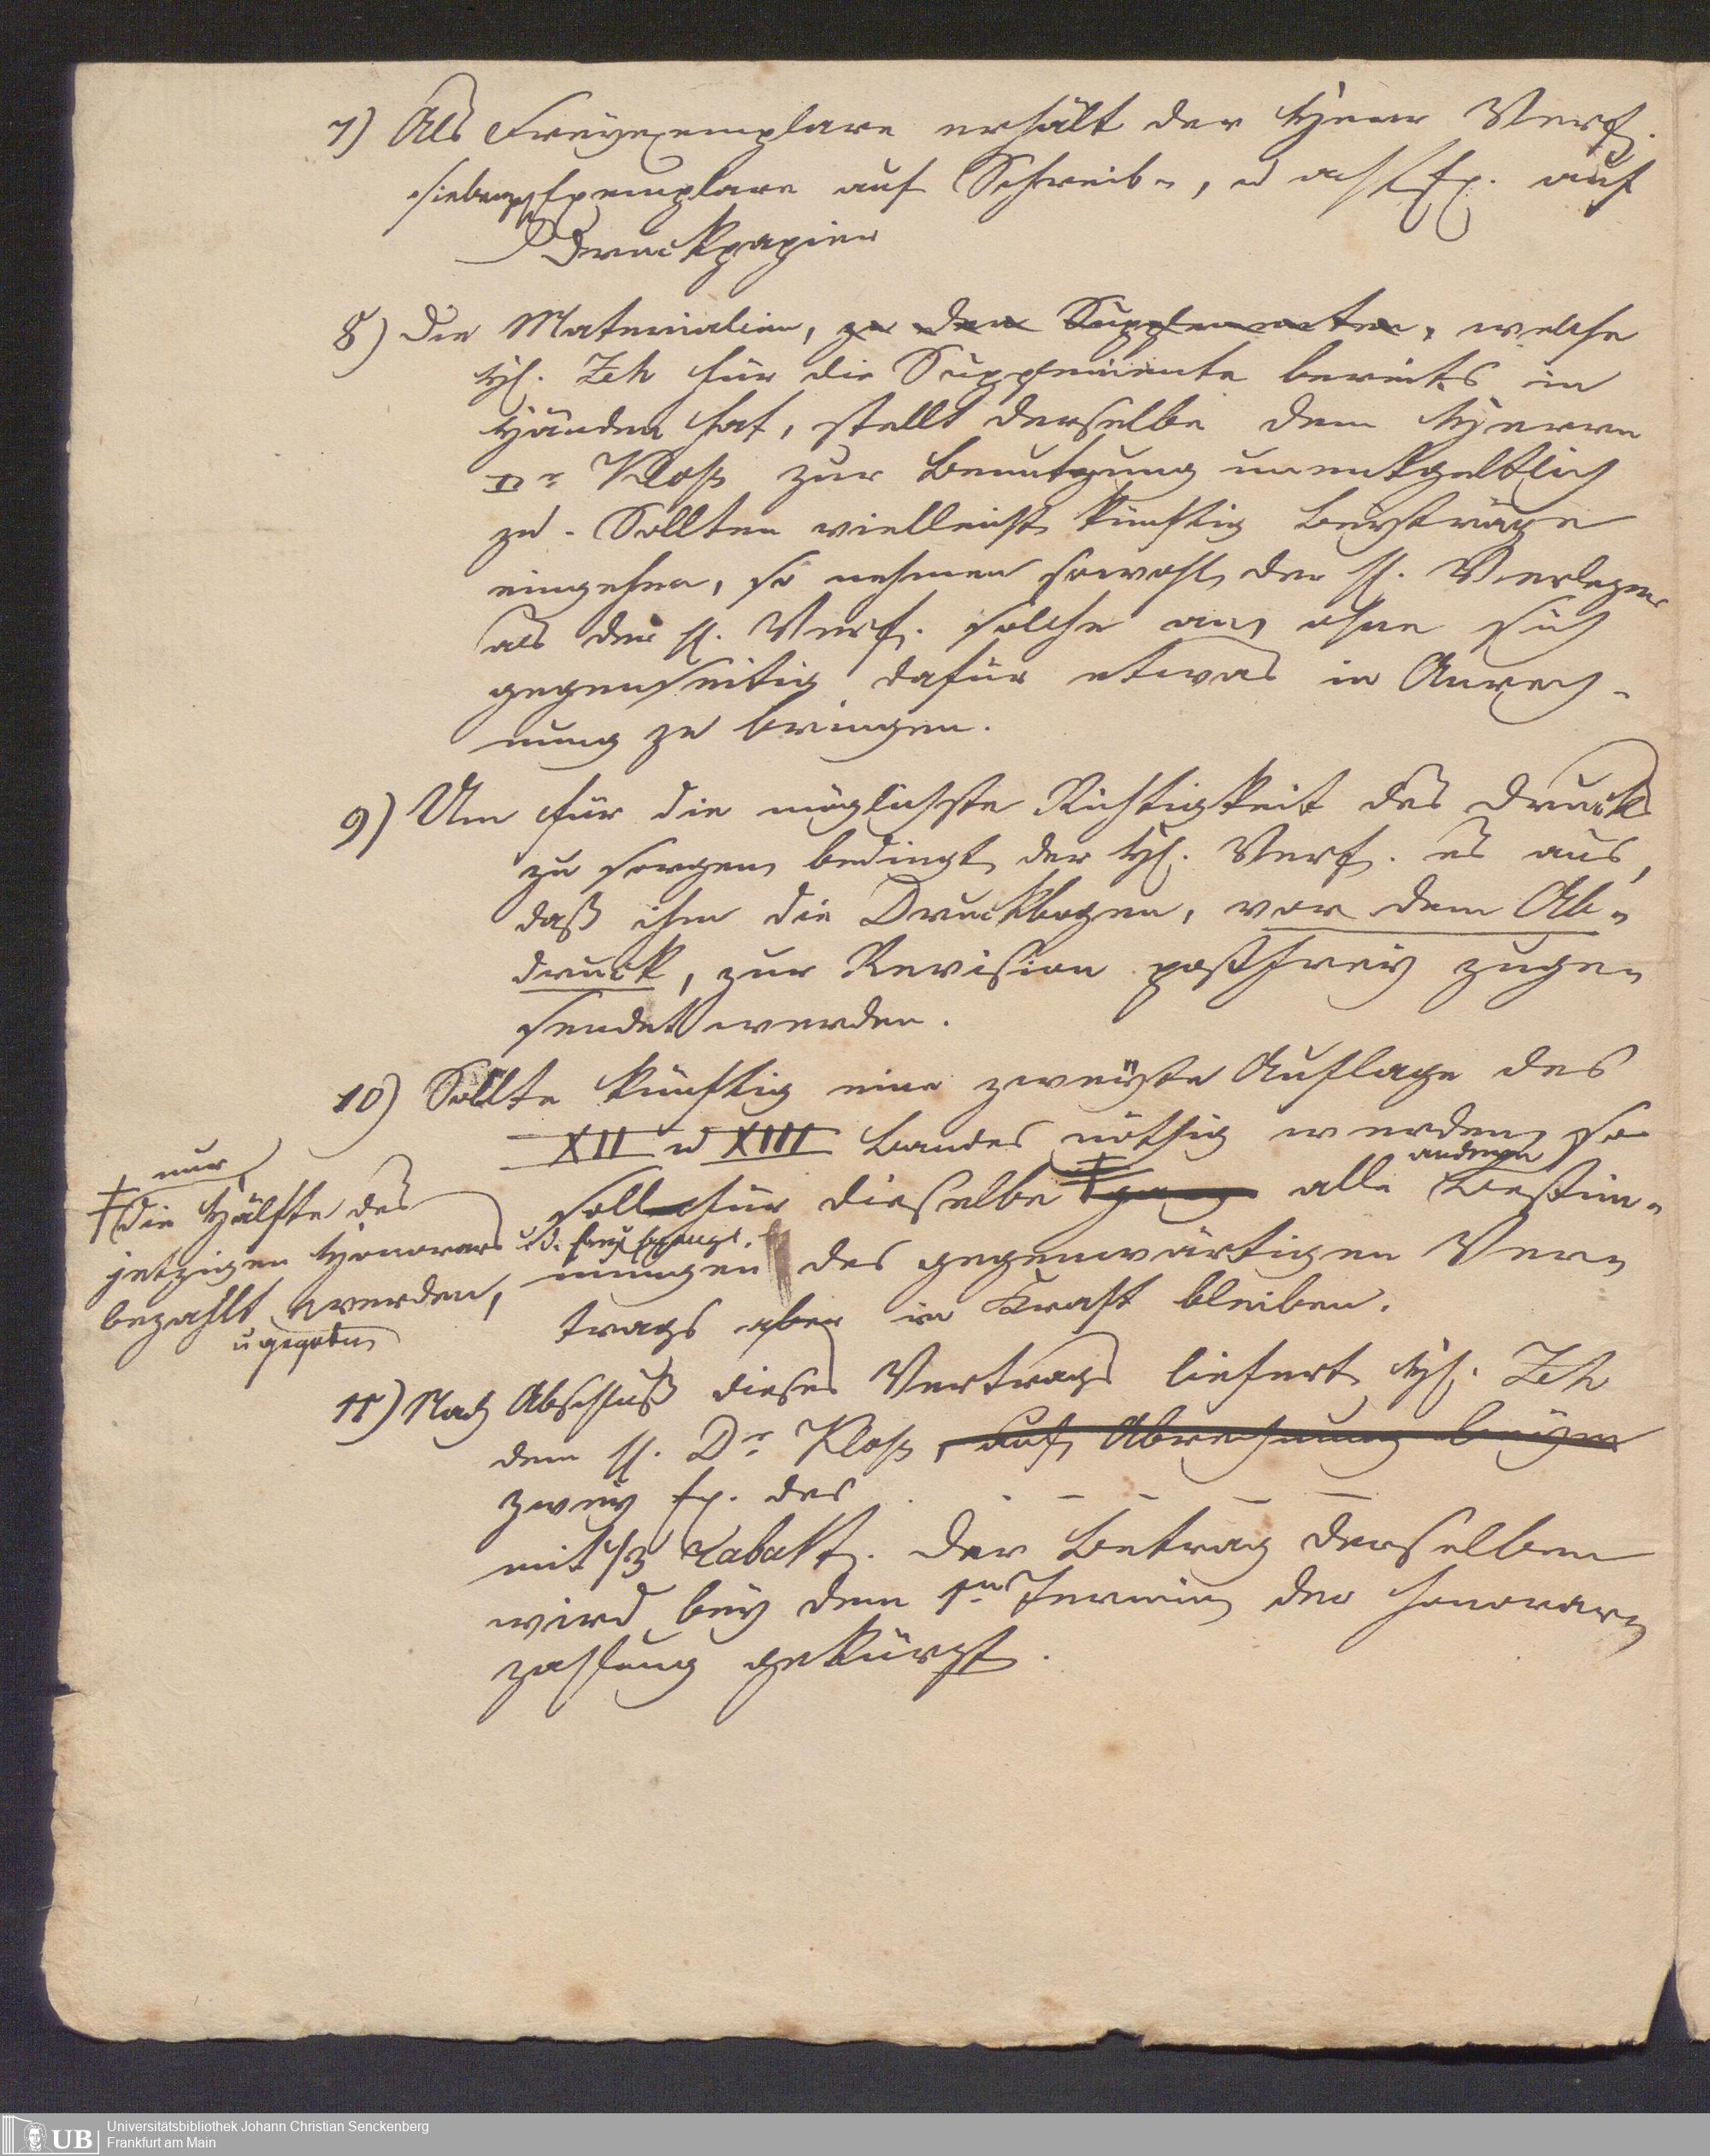 7) Als Freyexemplare erhält der Herr Verf.
sieben Exemplare auf Schreib-, u acht Ex. auf
Druckpapier
8) Die Materialien, zu den Supplementen, welche
H. Zeh für die Supplemente bereits in
Händen hat, stellt derselbe dem Herrn
Dr Kloß zur Benutzung unentgeltlich
zu. Sollten vielleicht künftig Beyträge
eingehen, so nehmen sowohl der H. Verleger
als der H. Verf. solche an, ohne sich
gegenseitig dafür etwas in Anrech-
nung zu bringen.
9) Um für die möglichste Richtigkeit des Drucks
zu sorgen, bedingt der H. Verf. es aus,
daß ihm die Druckbogen, vor dem Ab-
druck, zur Revision postfrey zuge-
sendet werden.
10) Sollte künftig eine zweyte Auflage des
XII u XIII Bandes nöthig werden, so
soll für dieselbe ‡ alle andern Bestim-
mungen des gegenwärtigen Ver-
trags aber in Kraft bleiben.
nur
‡ die Hälfte des
jetzigen Honorars u. d.
bezahlt werden,
u gegeben
11) Nach Abschluß dieses Vertrags liefert H. Zeh
dem H. Dr Kloß, auf Abrechnung beym
zwey Ex. des . . - - - -
mit 1/3 Rabatt. Der Betrag derselben
wird bey dem 1n Termin der Honorar-
zahlung gekürzt.
Universitätsbibliothek Johann Christian Senckenberg
UB Frankfurt am Main